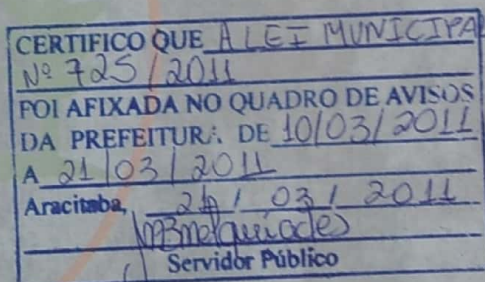 CERTIFICO QUE A LEI MUNICIPAL
Nº 725/2011
FOI AFIXADA NO QUADRO DE AVISOS
DA PREFEITURA DE 10/03/2011
A 21/03/2011
Aracitaba, 21/03/2011
Servidor Público